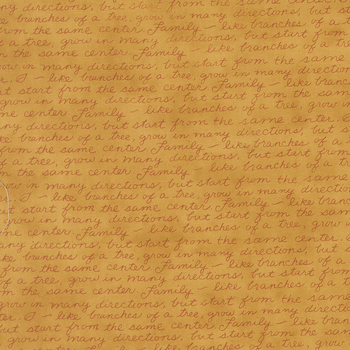 many directions, but start from the same center. Family
like branches of a tree, grow in many directions, but
from the same center. Family — like branches of a
of a tree, grow in many directions, but start from
the same center. Family — like branches of a tree
like branches of a tree, grow in many directions
but start from the same center. Family — like branches
grow in many directions, but start from the same
center. Family — like branches of a tree, grow
many directions, but start from the same center.
like branches of a tree, grow in many directions, but
from the same center. Family — like branches of a
of a tree, grow in many directions, but start from
the same center. Family — like branches of a tree
grow in many directions, but start from the same
like branches of a tree, grow in many directions
start from the same center. Family — like branches
grow in many directions, but start from the same
same center. Family — like branches of a tree, grow
many directions, but start from the same center.
like branches of a tree, grow in many directions, but
from the same center. Family — like branches of a
of a tree, grow in many directions, but start from
the same center. Family — like branches of a
grow in many directions, but start from the same
like branches of a tree, grow in many directions
but start from the same center. Family — like
branches of a tree, grow in many directions